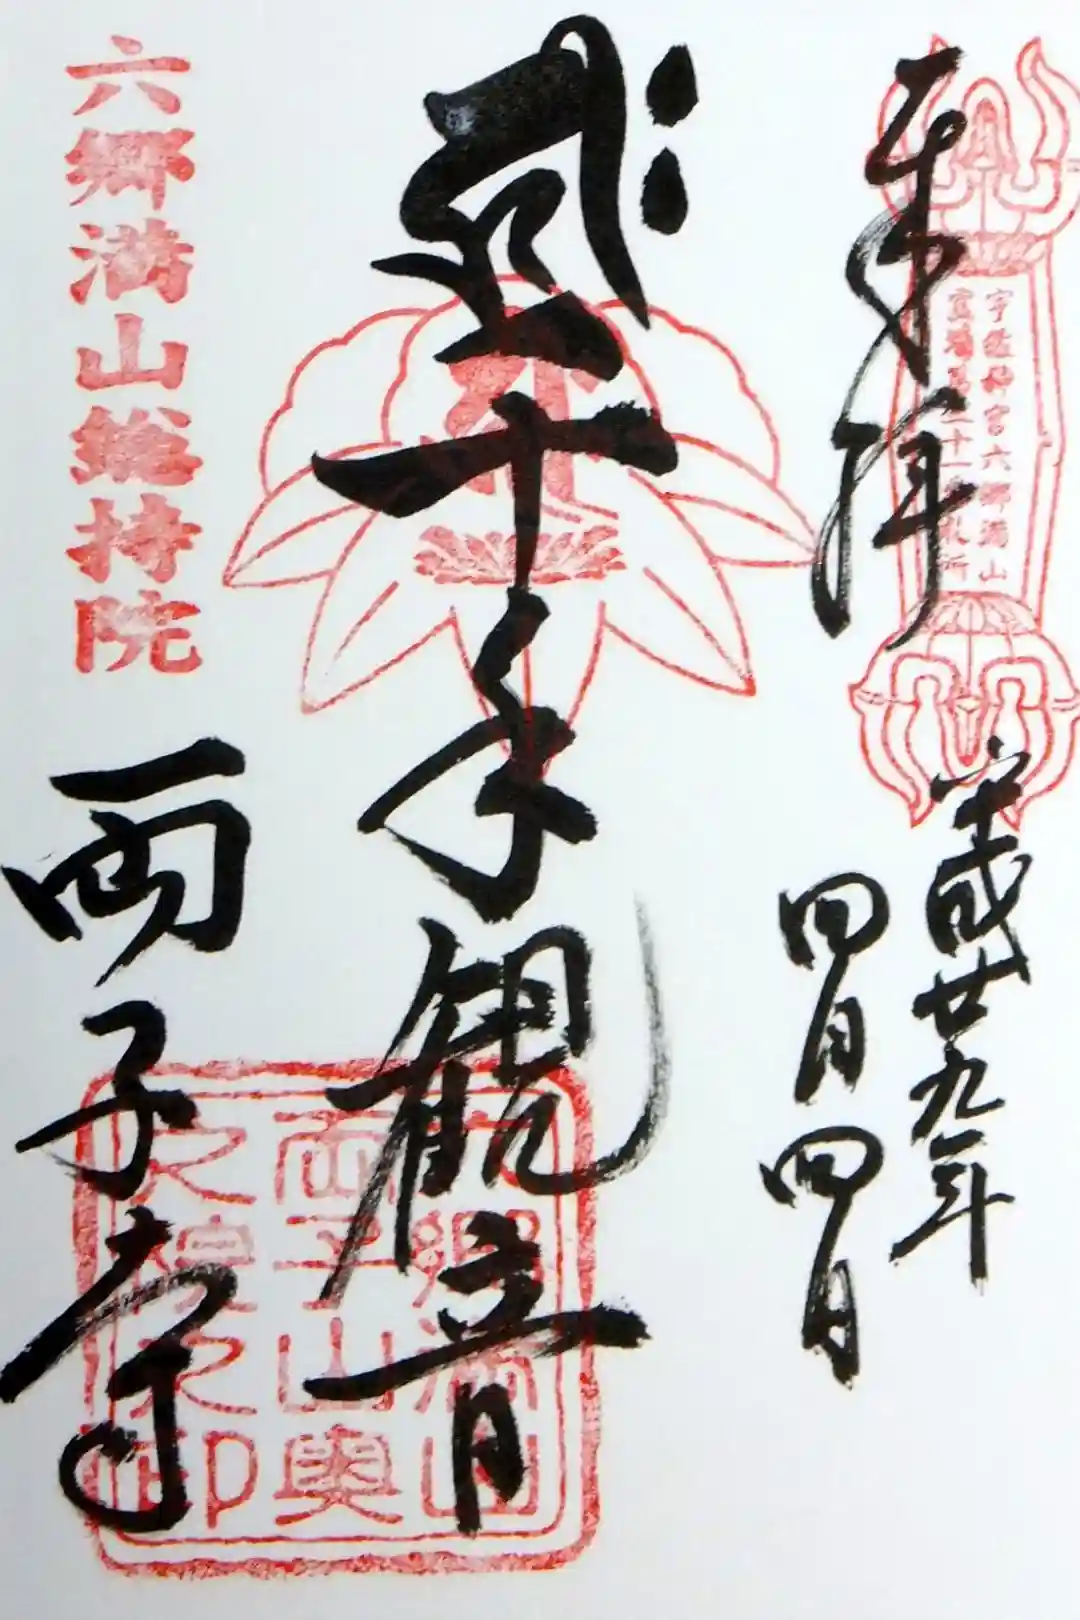 奉拝
宇佐神宮六郷満山
霊場 十一 札所
平成廿九年
四月四日
千手観音
六郷満山
両子山奥
之院之印
六郷満山総持院
両子寺